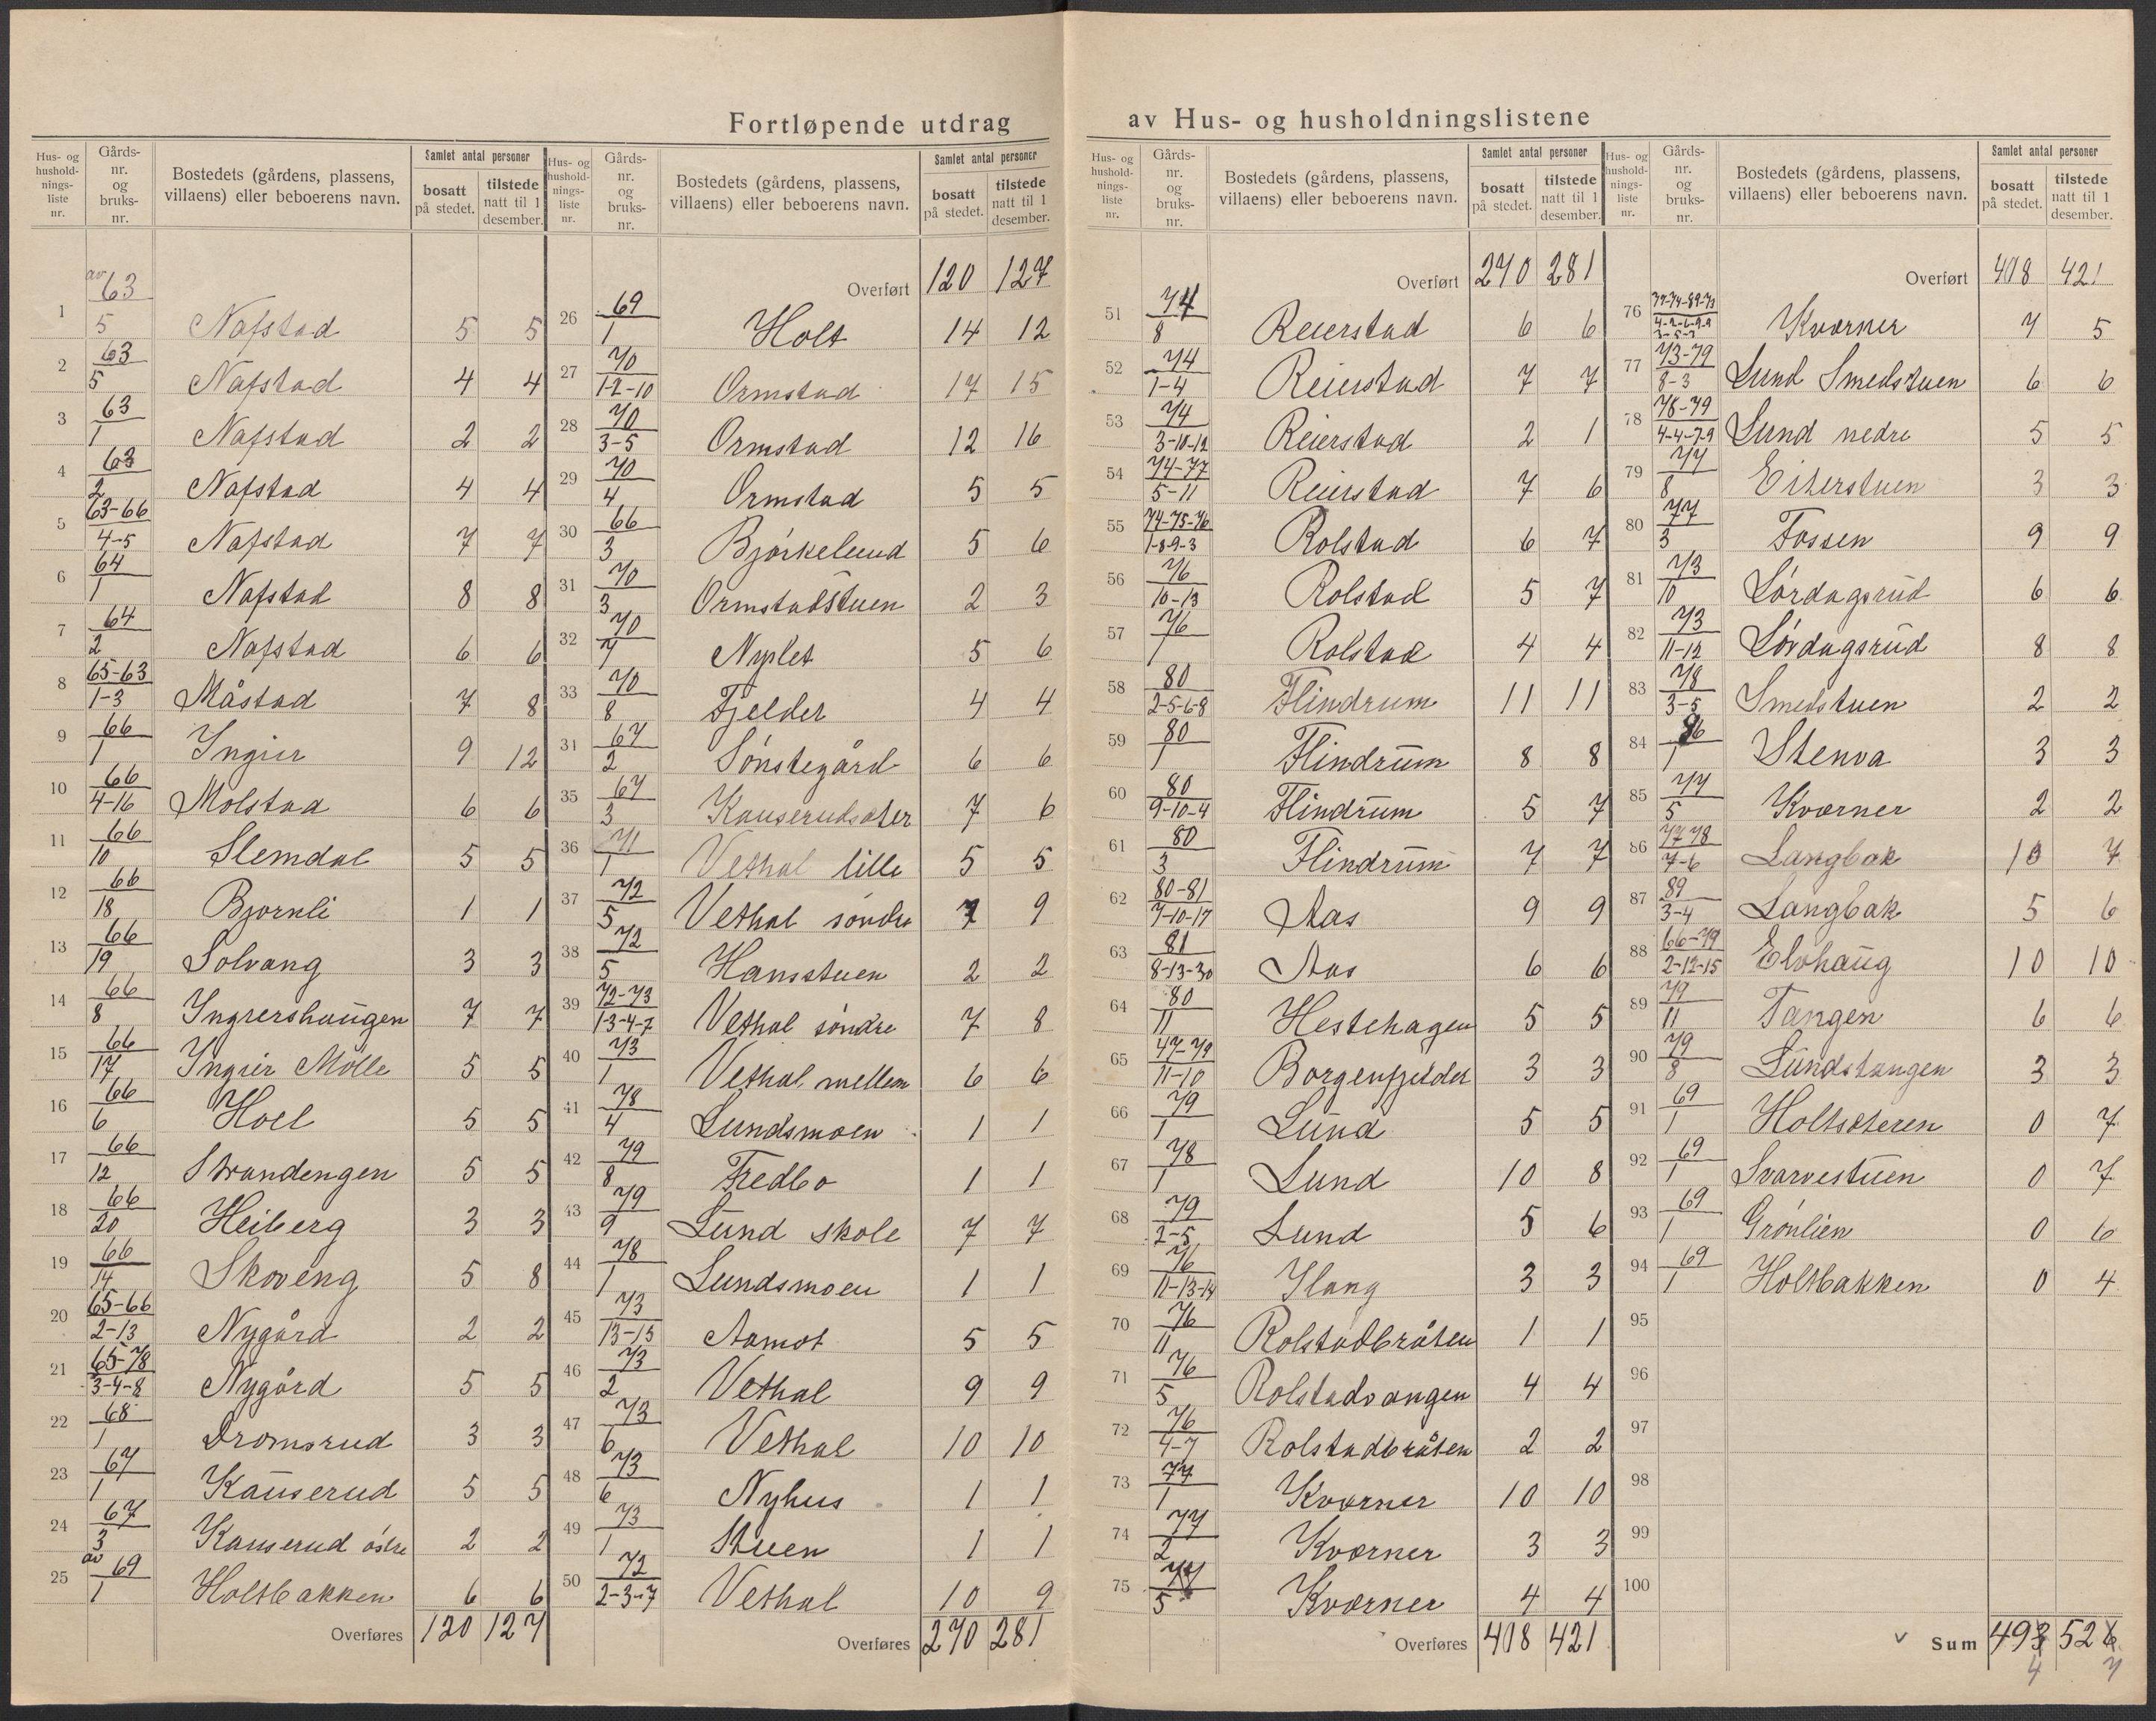 Fortløpende utdrag av Hus- og husholdningslistene
Hus- og hushold-nings-liste nr. Gårds-nr. og bruks-nr. Bostedets (gårdens, plassens, villaens) eller beboerens navn. Samlet antal personer bosatt på stedet. tilstede natt til 1 desember.
1 av 63/5 Nafstad 5 5
2 63/5 Nafstad 4 4
3 63/1 Nafstad 2 2
4 63/2 Nafstad 4 4
5 63-66/4-5 Nafstad 7 7
6 64/1 Nafstad 8 8
7 64/2 Nafstad 6 6
8 65-63/1-3 Måstad 7 8
9 66/1 Ingier 9 12
10 66/4-16 Molstad 6 6
11 66/10 Slemdal 5 5
12 66/18 Bjørnli 1 1
13 66/19 Solvang 3 3
14 66/8 Ingiershaugen 7 7
15 66/17 Ingier Mølle 5 5
16 66/6 Hoel 5 5
17 66/12 Strandengen 5 5
18 66/20 Heiberg 3 3
19 66/14 Skoveng 5 8
20 65-66/2-13 Nygård 2 2
21 65-78/3-4-8 Nygård 5 5
22 68/1 Dromsrud 3 3
23 67/1 Kauserud 5 5
24 67/3 Kauserud østre 2 2
25 av 69/1 Holtbakken 6 6
Overføres 120 127
Hus- og hushold-nings-liste nr. Gårds-nr. og bruks-nr. Bostedets (gårdens, plassens, villaens) eller beboerens navn. Samlet antal personer bosatt på stedet. tilstede natt til 1 desember.
Overført 120 127
26 69/1 Holt 14 12
27 70/1-2-10 Ormstad 17 15
28 70/3-5 Ormstad 12 16
29 70/4 Ormstad 5 5
30 66/3 Bjørkelund 5 6
31 70/3 Ormstadstuen 2 3
32 70/7 Nyslet 5 6
33 70/8 Fjelder 4 4
31 67/2 Sønstegård 6 6
35 67/3 Kauserudsæter 7 6
36 71/1 Vethal lille 5 5
37 72/5 Vethal søndre 7 9
38 72/5 Hansstuen 2 2
39 72-73/1-3-4-7 Vethal søndre 7 8
40 73/1 Vethal mellem 6 6
41 78/4 Lundsmoen 1 1
42 79/8 Fredbo 1 1
43 79/9 Lund skole 7 7
44 78/1 Lundsmoen 1 1
45 73/13-15 Aamot 5 5
46 73/2 Vethal 9 9
47 73/6 Vethal 10 10
48 73/6 Nyhus 1 1
49 73/1 Stuen 1 1
50 72/2-3-7 Vethal 10 9
Overføres 270 281
Hus- og hushold-nings-liste nr. Gårds-nr. og bruks-nr. Bostedets (gårdens, plassens, villaens) eller beboerens navn. Samlet antal personer bosatt på stedet. tilstede natt til 1 desember.
Overført 270 281
51 74/8 Reierstad 6 6
52 74/1-4 Reierstad 7 7
53 74/3-10-12 Reierstad 2 1
54 74-77/5-11 Reierstad 7 6
55 74-75-76/1-8-9-3 Rolstad 6 7
56 76/10-13 Rolstad 5 7
57 76/1 Rolstad 4 4
58 80/2-5-6-8 Flindrum 11 11
59 80/1 Flindrum 8 8
60 80/9-10-4 Flindrum 5 7
61 80/3 Flindrum 7 7
62 80-81/7-10-17 Aas 9 9
63 81/8-13-30 Aas 6 6
64 80/11 Hestehagen 5 5
65 47-79/11-10 Borgenfjeldet 3 3
66 79/1 Lund 5 5
67 78/1 Lund 10 8
68 79/2-5 Lund 5 6
69 76/11-13-14 Ilang 3 3
70 76/11 Rolstadbråten 1 1
71 76/5 Rolstadvangen 4 4
72 76/4-7 Rolstadbråten 2 2
73 77/1 Kværner 10 10
74 77/2 Kværner 3 3
75 77/5 Kværner 4 4
Overføres 408 421
Hus- og hushold-nings-liste nr. Gårds-nr. og bruks-nr. Bostedets (gårdens, plassens, villaens) eller beboerens navn. Samlet antal personer bosatt på stedet. tilstede natt til 1 desember.
Overført 408 421
76 Kværner 7 5
77 73-79/8-3 Lund Smedstuen 6 6
78 78-79/4-4-7-9 Lund nedre 5 5
79 77/8 Eikerstuen 3 3
80 77/3 Fossen 9 9
81 73/10 Lørdagsrud 6 6
82 73/11-12 Lørdagsrud 8 8
83 78/3-5 Smedstuen 2 2
84 1 Stenva 3 3
85 77/5 Kværner 2 2
86 77 78/7-6 Langbak 10 7
87 89/3-4 Langbak 5 6
88 66-79/2-12-15 Elvhaug 10 10
89 79/11 Tangen 6 6
90 79/8 Lundstangen 3 3
91 69/1 Holtsæteren 0 7
92 69/1 Svarvestuen 0 7
93 69/1 Grønlien 0 6
94 69/1 Holtbakken 0 4
95
96
97
98
99
100
v Sum 493 526
4 7